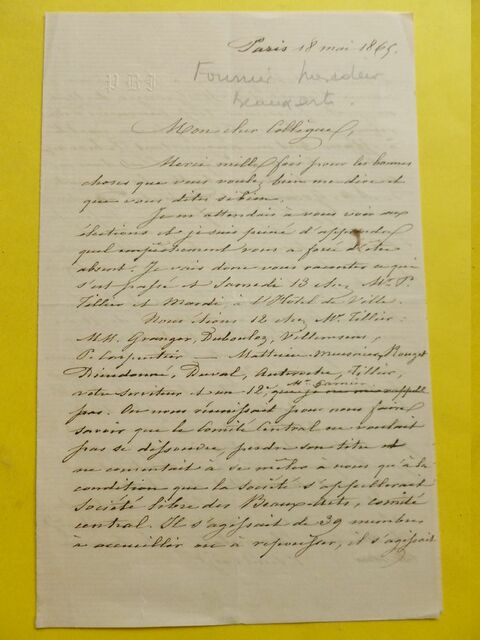 Paris 18 mai 1865.
Fournier
Beaux arts.
Mon cher Collègue,
Merci mille fois pour les bonnes
choses que vous voulez bien me dire et
que vous dites si bien.
Je m'attendais à vous voir aux
élections et je suis peiné d'apprendre
quel empêchement vous a forcé d'être
absent. Je vais donc vous raconter ce qui
s'est passé et Samedi 13 chez Mr. P.
Tillier et Mardi à l'Hôtel de Ville.
Nous étions 12 chez Mr. Tillier:
MM. Granger, Dubouloz, Villemsens,
P. Carpentier — Mathieu Meusnier, Rouget
Dieudonné, Duval, Autroche, Tillier,
votre serviteur et un 12e, que je ne me rappelle
Mr. Garnier
pas. On nous réunissait pour nous faire
savoir que le Comité Central ne voulait
pas se dissoudre, perdre son titre et
ne consentait à se mêler à nous qu'à la
condition que la Société s'appellerait
Société libre des Beaux-Arts, comité
central. Il s'agissait de 39 membres
à accueillir ou à repousser, il s'agissait